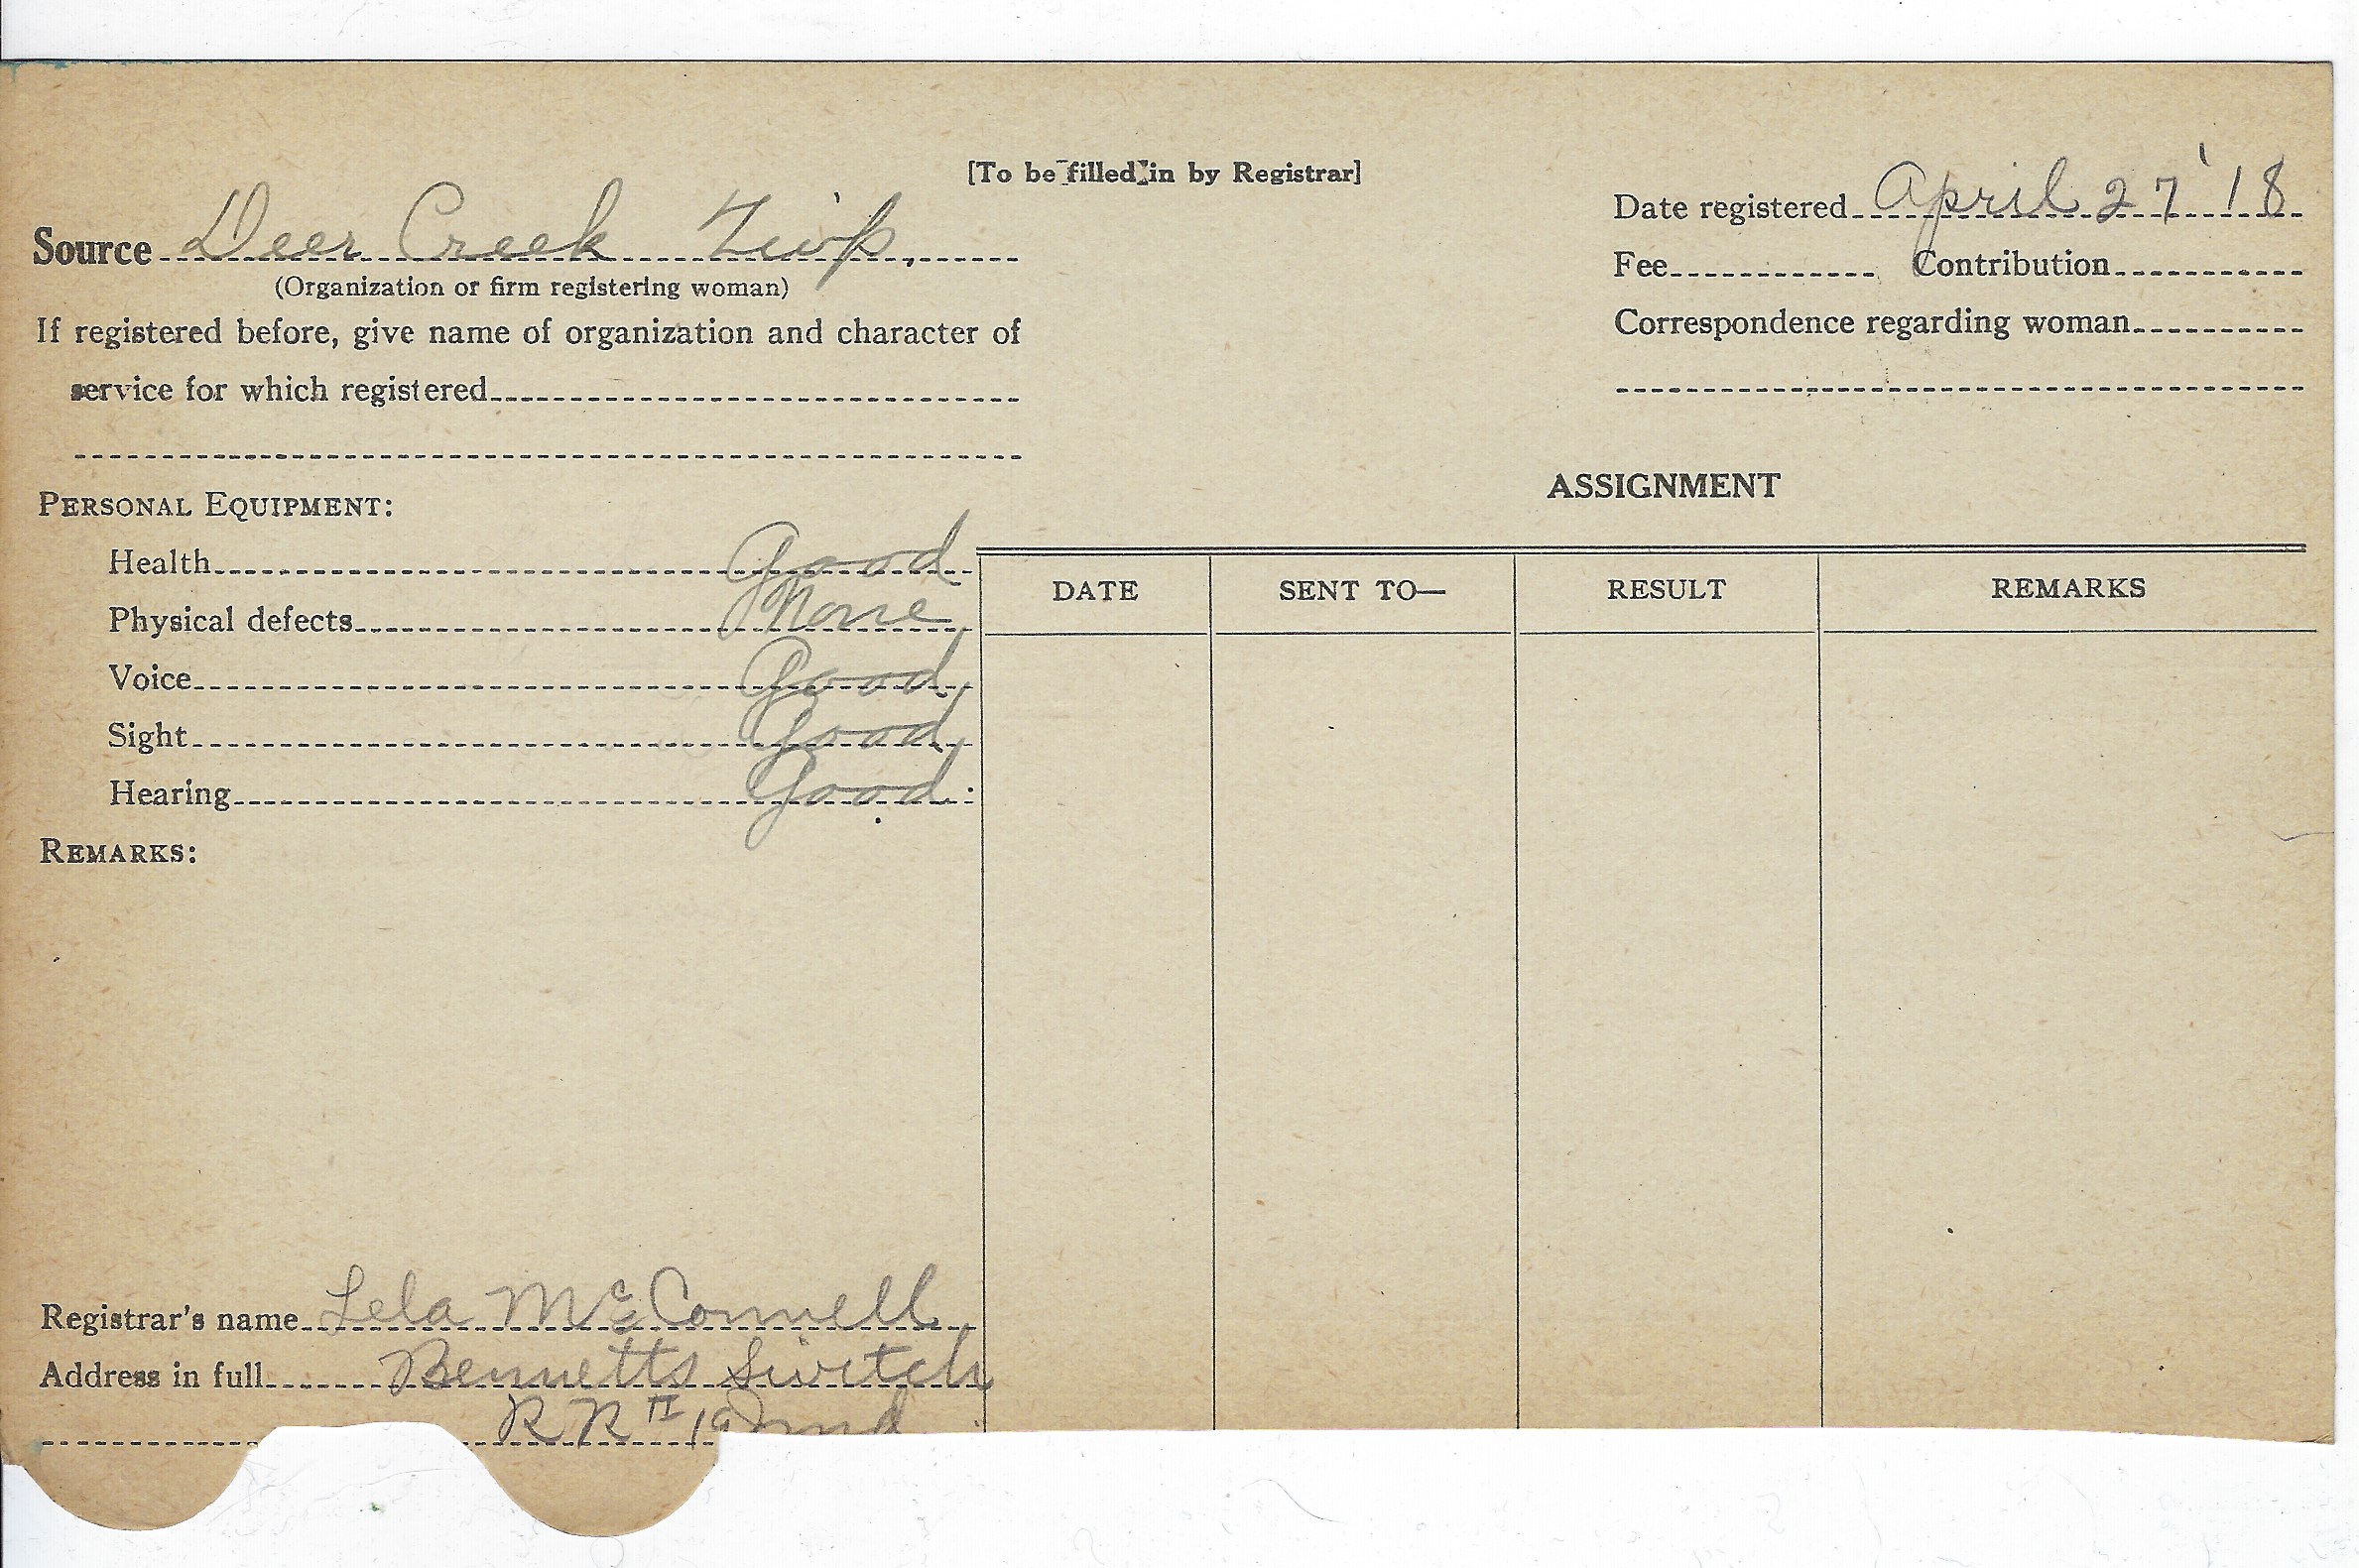 [To be filled in by Registrar]
Source Deer Creek Twp.
(Organization or firm registering woman)
If registered before, give name of organization and character of
service for which registered
Date registered April 27 '18
Fee Contribution
Correspondence regarding woman
PERSONAL EQUIPMENT:
Health Good
Physical defects None
Voice Good
Sight Good
Hearing Good
REMARKS:
ASSIGNMENT
DATE SENT TO— RESULT REMARKS
Registrar's name Lela McConnell
Address in full Bennetts Switch
R R Ind